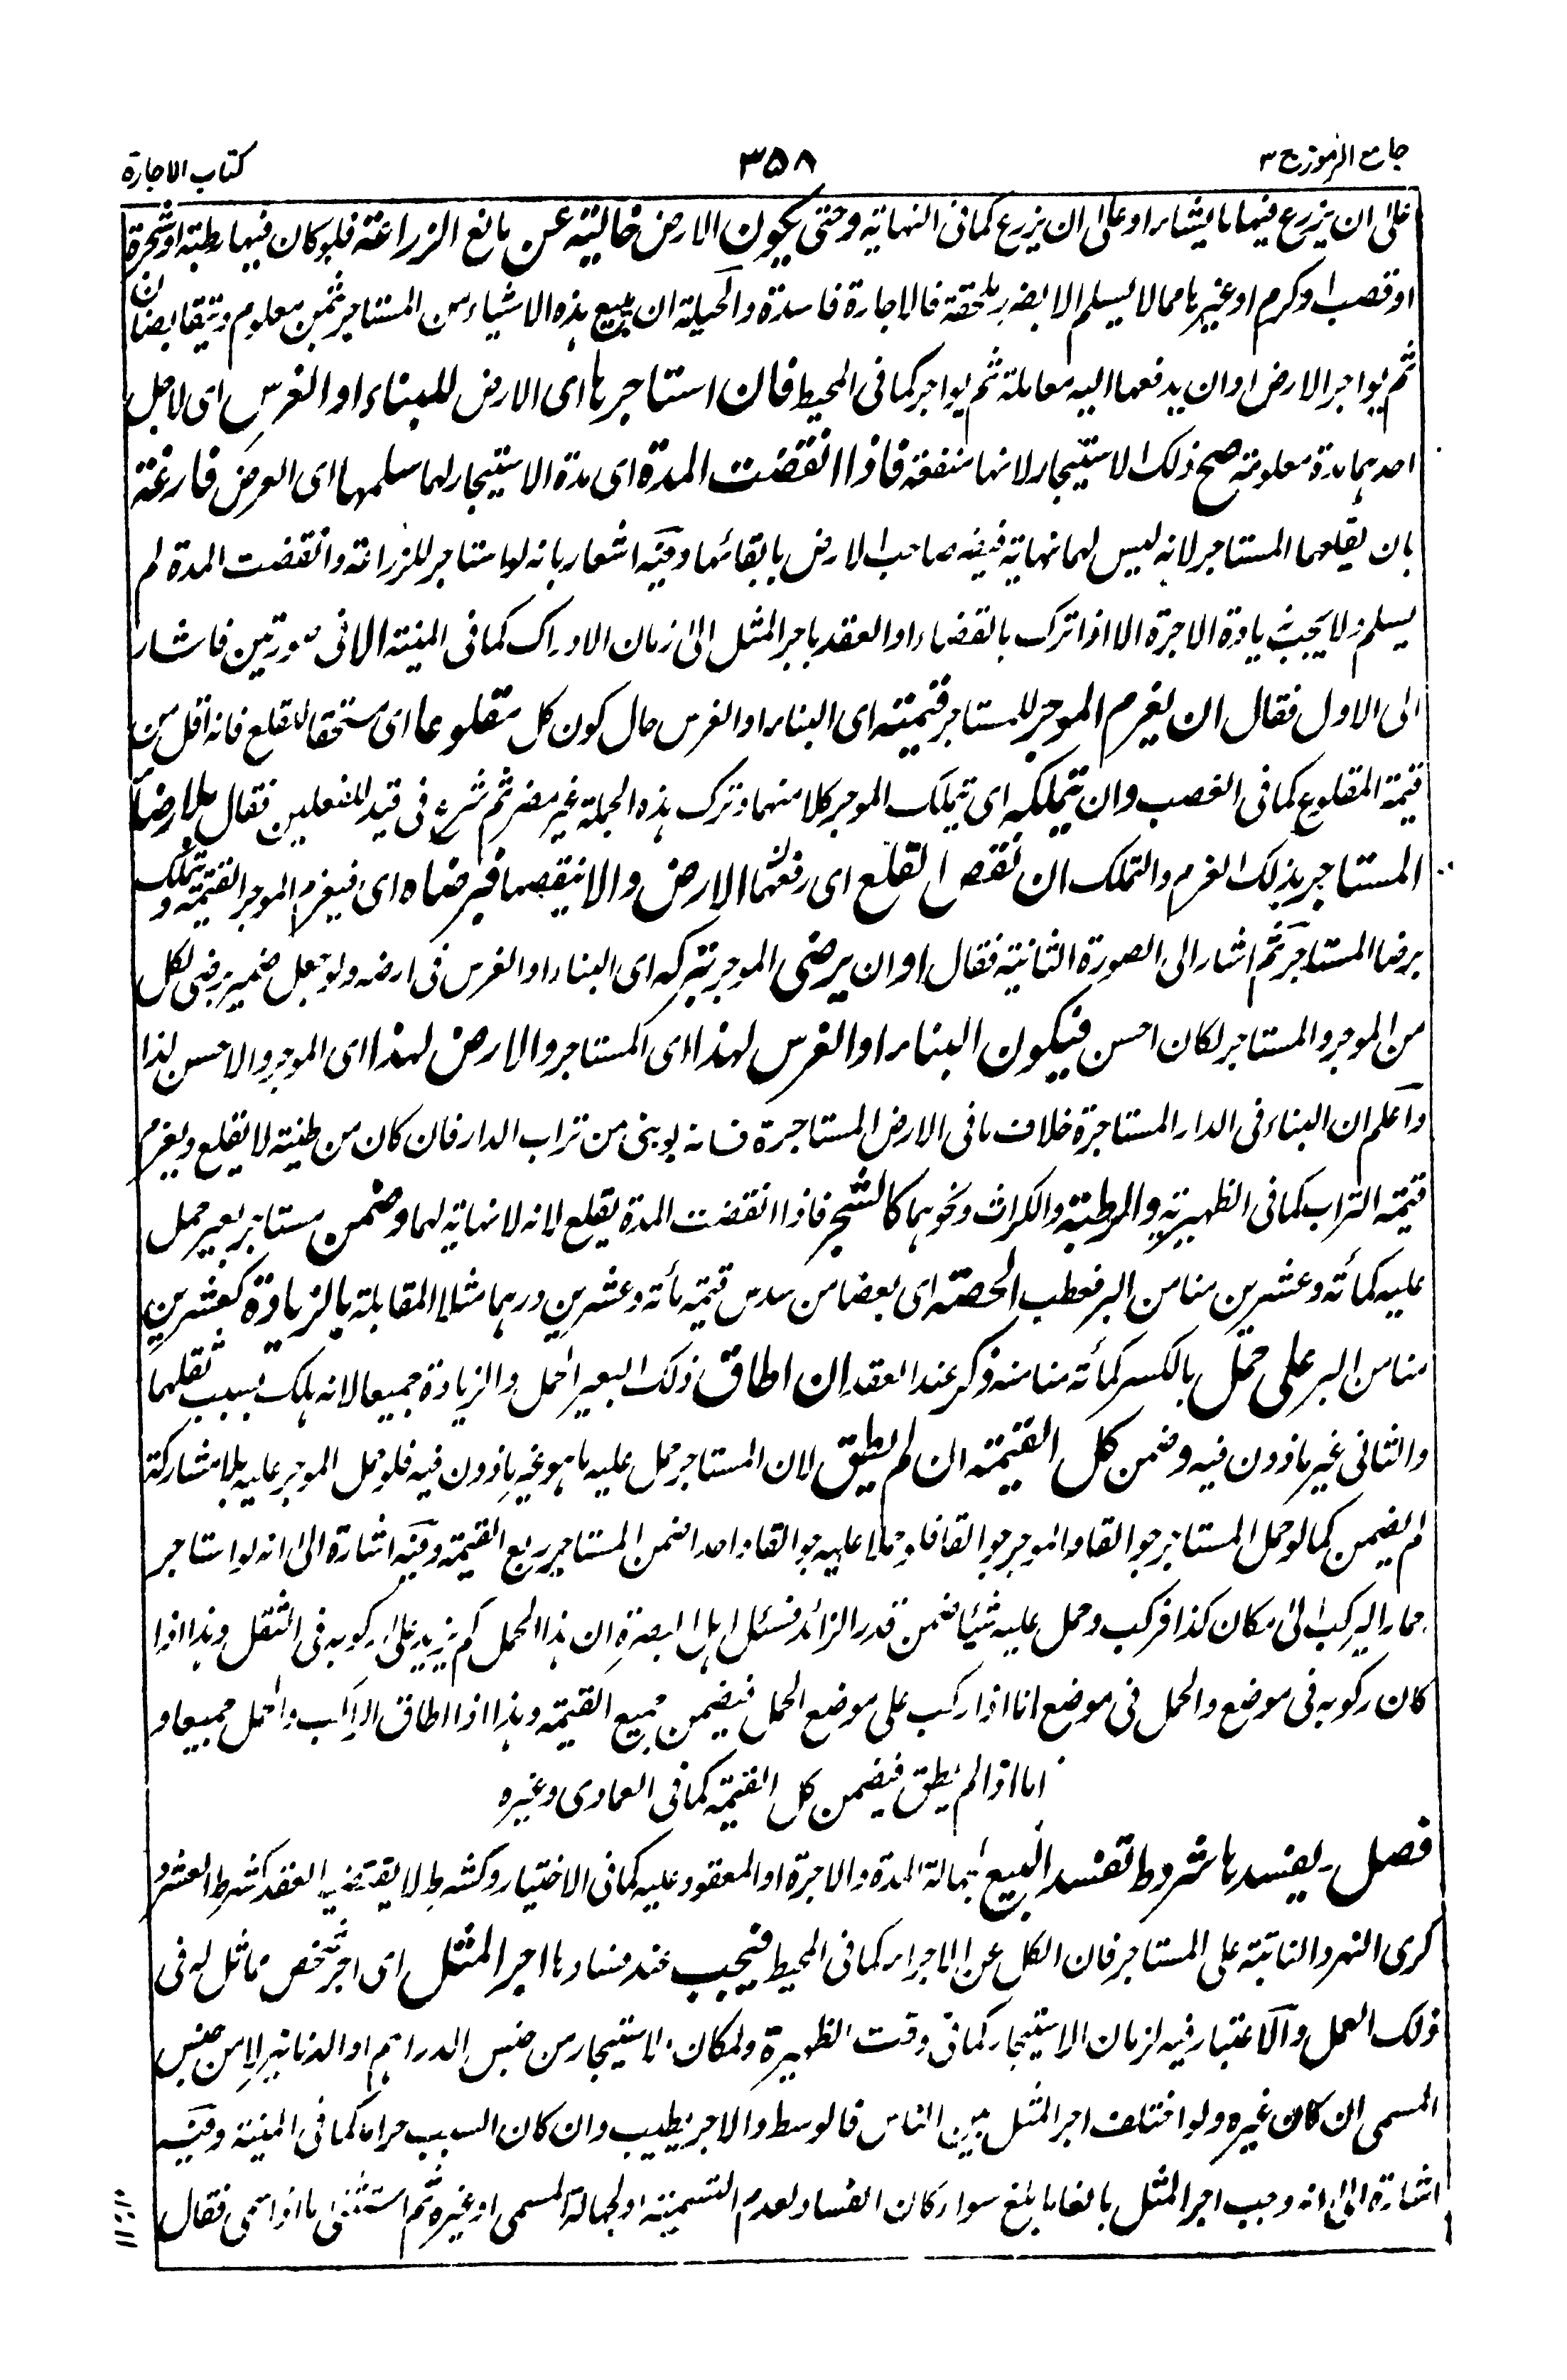 جامع الرموز ج ٣
٣٥٨
كتاب الاجارة
على ان يزرع فيها ما يشاء او على ان يزرع كما فى النهاية وحتى يكون الارض خالية عن مانع الزراعة فلو كان فيها رطبة او شجرة
او قصب او كرم او غيرها مما لا يسلم الا بضرر يلحقه فالاجارة فاسدة والحيلة ان يبيع هذه الاشياء من المستاجر بثمن معلوم ويتقابضان
ثم يواجر الارض او ان يدفعها اليه معاملة ثم يواجر كما فى المحيط فان استاجرها اى الارض للبناء او الغرس اى لاجل
احدهما مدة معلومة صح ذلك الاستيجار لانها منفعة فاذا انقضت المدة اى مدة الاستيجار لهما سلمها اى العرض فارغة
بان يقلعهما المستاجر لانه ليس لهما نهاية فيضر صاحب الارض بابقائهما وفيه اشعار بانه لو استاجر للزراعة وانقضت المدة لم
يسلم ولا يجب زيادة الاجرة الا اذا ترك بالقضاء او العقد باجر المثل الى زمان الادراك كما فى المنية الا فى صورتين فاشار
الى الاول فقال ان يغرم الموجر للمستاجر قيمته اى البناء او الغرس حال كون كل مقلوعا اى مستحقا للقلع فانه اقل من
قيمة المقلوع كما فى الغصب وان يتملكه اى يتملك الموجر كلا منهما وترك هذه الجملة غير مضر ثم شرع فى قيد للفعلين فقال بلا رضا
المستاجر بذلك الغرم والتملك ان نقص القلع اى رفعهما الارض والا ينقصها فبرضاه اى فيغرم الموجر القيمة ويتملك
برضا المستاجر ثم اشار الى الصورة الثانية فقال او ان يرضى الموجر بتركه اى البناء او الغرس فى ارضه ولو جعل ضمير يرضى لكل
من الموجر والمستاجر لكان احسن فيكون البناء او الغرس لهذا اى المستاجر والارض لهذا اى الموجر والاحسن لذا
واعلم ان البناء فى الدار المستاجرة خلاف ما فى الارض المستاجرة فانه لو بنى من تراب الدار فان كان من طينة لا يقلع ويغرم
قيمة التراب كما فى الظهيرية والرطبة والكراث ونحوهما كالشجر فاذا انقضت المدة يقلع لانه لا نهاية لهما وضمن مستاجر بعير حمل
عليه كمائة وعشرين منا من البر فعطب الحصة اى بعضا من سدس قيمته مائة وعشرين درهما مثلا المقابلة بالزيادة كعشرين
منا من البر على حمل بالكسر كمائة منا منه ذكر عند العقد ان اطاق ذلك البعير الحمل والزيادة جميعا لانه هلك بسبب ثقلهما
والثانى غير ماذون فيه وضمن كل القيمة ان لم يطق لان المستاجر حمل عليه ما هو غير ماذون فيه فلو حمل الموجر عليه بلا مشاركة
لم يضمن كما لو حمل المستاجر جوالقا والموجر جوالقا فلو حملا عليه جوالقا واحدا ضمن المستاجر ربع القيمة وفيه اشارة الى انه لو استاجر
حمارا ليركب الى مكان كذا فركب وحمل عليه شيئا ضمن قدر الزائد فسئل اهل البصرة ان هذا الحمل كم يزيد على ركوبه فى الثقل وهذا اذا
كان ركوبه فى موضع والحمل فى موضع اما اذا ركب على موضع الحمل فيضمن جميع القيمة وهذا اذا اطاق الراكب والحمل جميعا و
اما اذا لم يطق فيضمن كل القيمة كما فى العمادى وغيره
فصل يفسدها شروط تفسد البيع لجهالة المدة والاجرة او المعقود عليه كما فى الاختيار وكشرط لا يقتضيه العقد كشرط العشر و
كرى النهر والنائبة على المستاجر فان الكل عن الاجراء كما فى المحيط فيجب عند فسادها اجر المثل اى اجر شخص مماثل له فى
ذلك العمل والاعتبار فيه لزمان الاستيجار كما فى وقت الظهيرة ولمكان الاستيجار من جنس الدراهم او الدنانير لا من جنس
المسمى ان كان غيره ولو اختلف اجر المثل بين الناس فالوسط والاجر يطيب وان كان السبب حراما كما فى المنية وفيه
اشارة الى انه وجب اجر المثل بالغا ما بلغ سواء كان الفساد لعدم التسمية او لجهالة المسمى او غيره ثم استثنى ما اذا سمى فقال